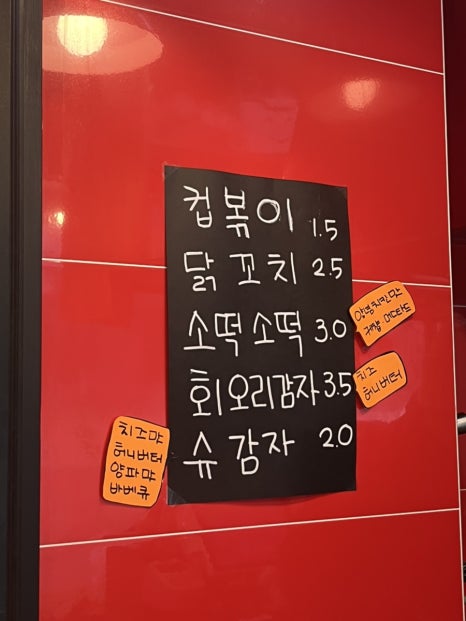 컵볶이 1.5
닭꼬치 2.5
소떡소떡 3.0
양념치킨맛
케찹 머스타드
회오리감자 3.5
치즈
허니버터
슈감자 2.0
치즈맛
허니버터
양파맛
바베큐